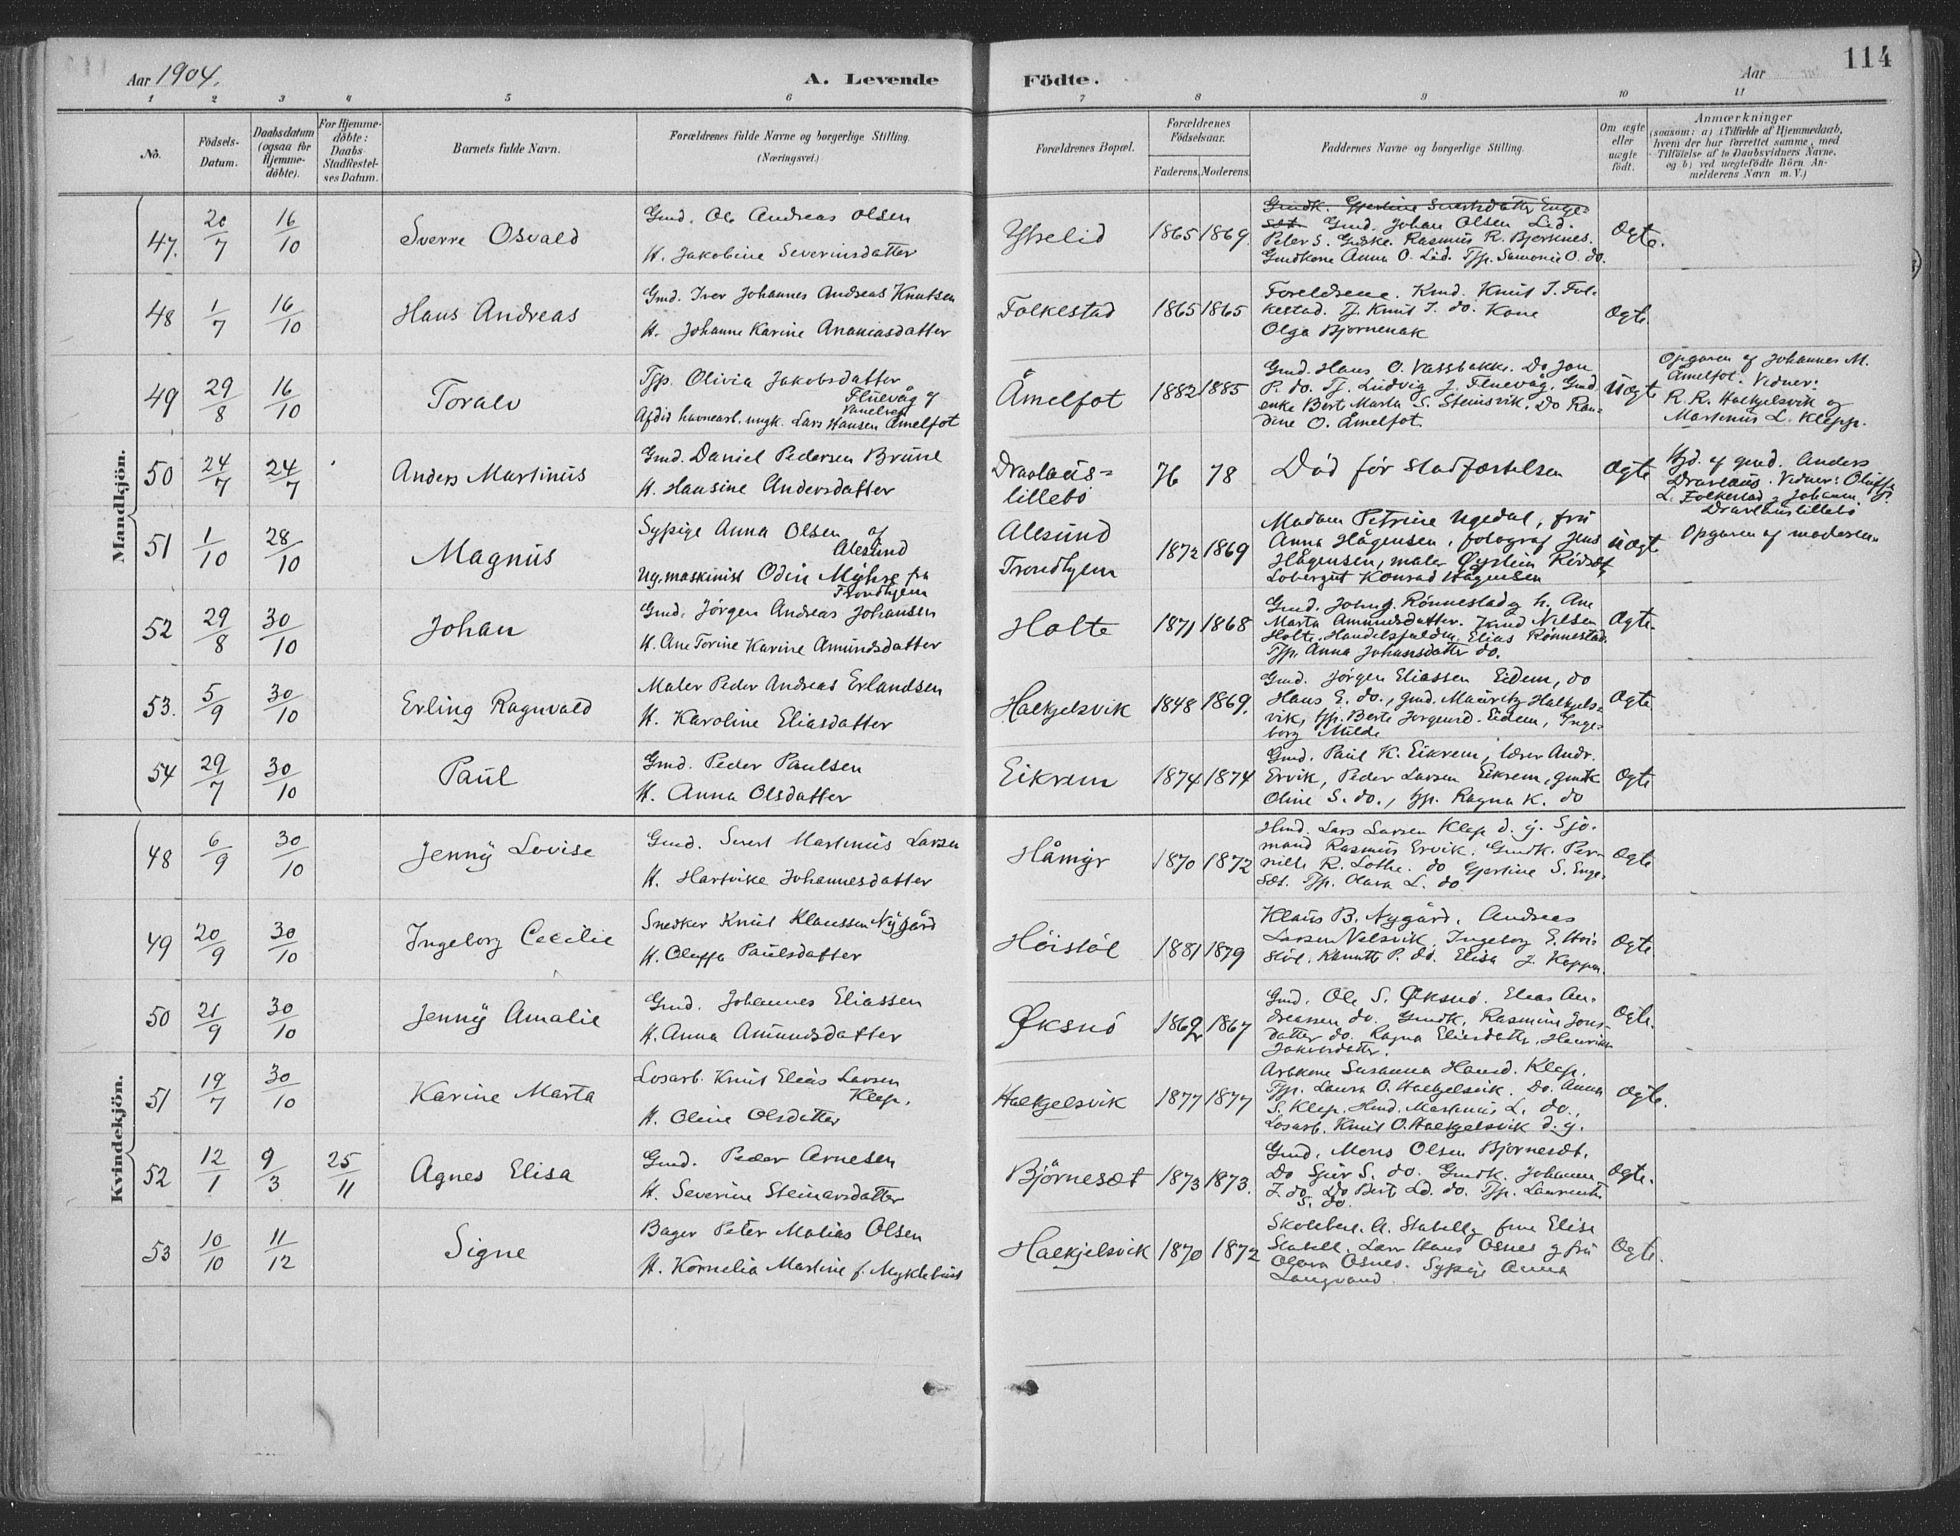 Aar 1904.
A. Levende Födte.
Aar
114
1 2 3 4 5 6 7 8 9 10 11
No.
Födsels-Datum.
Daabsdatum (ogsaa for Hjemme-döbte).
For Hjemme-döbte: Daabs Stadfestel-ses Datum.
Barnets fulde Navn.
Forældrenes fulde Navne og borgerlige Stilling. (Næringsvei.)
Forældrenes Bopæl.
Forældrenes Födselsaar.
Faderens. Moderens.
Faddernes Navne og borgerlige Stilling.
Om ægte eller uægte födt.
Anmærkninger
(saasom: a) i Tilfælde af Hjemmedaab, hvem der har forrettet samme, med Tilföielse af to Daabsvidners Navne, og b) ved uægtefödte Börn An-melderens Navn m. V.)
Mandkjön.
47. 20/7 16/10 Sverre Osvald
Gmd. Ole Andreas Olsen
H. Jakobine Severinsdatter
Ytrelid 1865 1869.
Gmdk. Gjertine Sivertsdatter Enge-
set. Gmd. Johan Olsen Lid.
Peter S. Giske. Rasmus R. Bjerknes.
Gmdkone Anna O. Lid. Tjp. Samonie O. do.
Ægte.
48 1/7 16/10 Hans Andreas
Gmd. Iver Johannes Andreas Knutsen
H. Johanne Karine Ananiasdatter
Folkestad 1865 1865
Foreldrene. Kmd. Knut J. Fol-
kestad. Tj. Knut I. do. Kone
Olga Bjornenak
Ægte.
49 29/8 16/10 Toralv
Tjp. Olivia Jakobsdatter
Fluevåg og
Afdød havnearb. ungk. Lars Hansen Åmelfot
Åmelfot 1882 1885
Gmd. Hans O. Vassbakk. Do Jon
P. do. Tj. Ludvig J. Fluevåg. Gmd.
enke Bert Marta S. Steinsvik. Do Ran-
dine O. Åmelfot.
Uægte
Opgaven af Johannes M.
Åmelfot. Vidner:
R. R. Halkjelsvik og
Martinus L. Klepp.
50 24/7 24/7 Anders Martinus
Gmd. Daniel Pedersen Brune
H. Hansine Andersdatter
Dravlaus-
lillebö
76 78 Död før Stadfæstelsen
Ægte
Hjd. af gmd. Anders
Dravlaus. Vidner: Oluffa
L. Folkestad, Johanna P.
Dravlauslillebö
51 1/10 28/10 Magnus
Sypige Anna Olsen af
Alesund
Ug. maskinist Odin Myhre fra
Trondhjem
Alesund
Trondhjem
1872 1869
Madam Petrine Ugedal, fru
Anna Hågensen, fotograf Jens
Hågensen, maler Øystein Rødset,
Lobergut Konrad Hågensen
Uægte
Opgaven af moderen
52 29/8 30/10 Johan
Gmd. Jörgen Andreas Johansen
H. Ane Torine Karine Amundsdatter
Holte 1871 1868
Gmd. Johan J. Rönnestad og h. Ane
Marta Amundsdatter. Knud Nilsen
Holte. Handelsfuldm. Elias Rønnestad.
Tjp. Anna Johansdatter do.
Ægte.
53. 5/9 30/10 Erling Ragnvald
Maler Peder Andreas Erlandsen
H. Karoline Eliasdatter
Halkjelsvik 1848 1869.
Gmd. Jörgen Eliassen Eidem, do
Hans E. do., gmd. Mauritz Halkjels-
vik, tjp. Berte Jorgensd. Eidem, Inge-
borg Milde
Ægte
54 29/7 30/10 Paul
Gmd. Peder Paulsen
H. Anna Olsdatter
Eikrem 1874 1874
Gmd. Paul K. Eikrem, lærer Andr.
Ervik, Peder Larsen Eikrem, gmdk
Oline S. do., tjp. Ragna K. do
Ægte
Kvindekjön.
48 6/9 30/10 Jenny Lovise
Gmd. Sivert Martinus Larsen
H. Hartvike Johannesdatter
Håmyr 1870 1872
Hmd. Lars Larsen Klep d. y. Sjö-
mand Rasmus Ervik. Gmdk. Per-
nille R. Lothe. do Gjertine S. Enge-
set. Tjp. Olava L. do
Ægte
49 20/9 30/10 Ingeborg Cecilie
Snedker Knut Klaussen Nygård
H. Oluffa Paulsdatter
Höistöl 1881 1879
Klaus B. Nygård. Andreas
Larsen Velsvik. Ingeborg E. Höi-
stöl. Kanutte P. do. Elisa J. Koppen.
Ægte.
50 21/9 30/10 Jenny Amalie
Gmd. Johannes Eliassen
H. Anna Amundsdatter
Øksnö 1862 1867
Gmd. Ole S. Øksnö. Elias An-
dreassen do. Gmdk. Rasmine Jons-
datter do. Ragna Eliasdatter. Henrikke
Jakobsdatter.
Ægte.
51 19/7 30/10 Karine Marta
Losarb. Knut Elias Larsen
Klep.
H. Oline Olsdatter
Halkjelsvik 1877 1877
Arbkone Susanna Hansd. Klep.
Tjp. Laura O. Halkjelsvik. Do. Anna
S. Klep. Hmd. Martinus L. do.,
Losarb. Knut O. Halkjelsvik d. y.
Ægte.
52 12/1 9/3 25/11 Agnes Elisa
Gmd. Peder Arnesen
H. Severine Steinarsdatter
Björnesæt 1873 1873.
Gmd. Mons Olsen Bjornesæt.
Do Sjur S. do. Gmdk. Johanna
J. do. Do Berte Ed. do. Tjp. Laurentse
S. do.
Ægte.
53 10/10 11/12 Signe
Bager Peter Matias Olsen
H. Kornelia Martine f. Myklebust
Halkjelsvik 1870 1872
Skolebest. A. Stabell og frue Elise
Stabell. Lærer Hans Osnes og fru
Olava Osnes. Sypige Anna
Langvand.
Ægte.